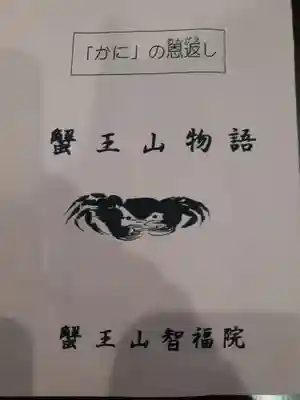 「かに」の恩返し
蟹王山物語
蟹王山智福院